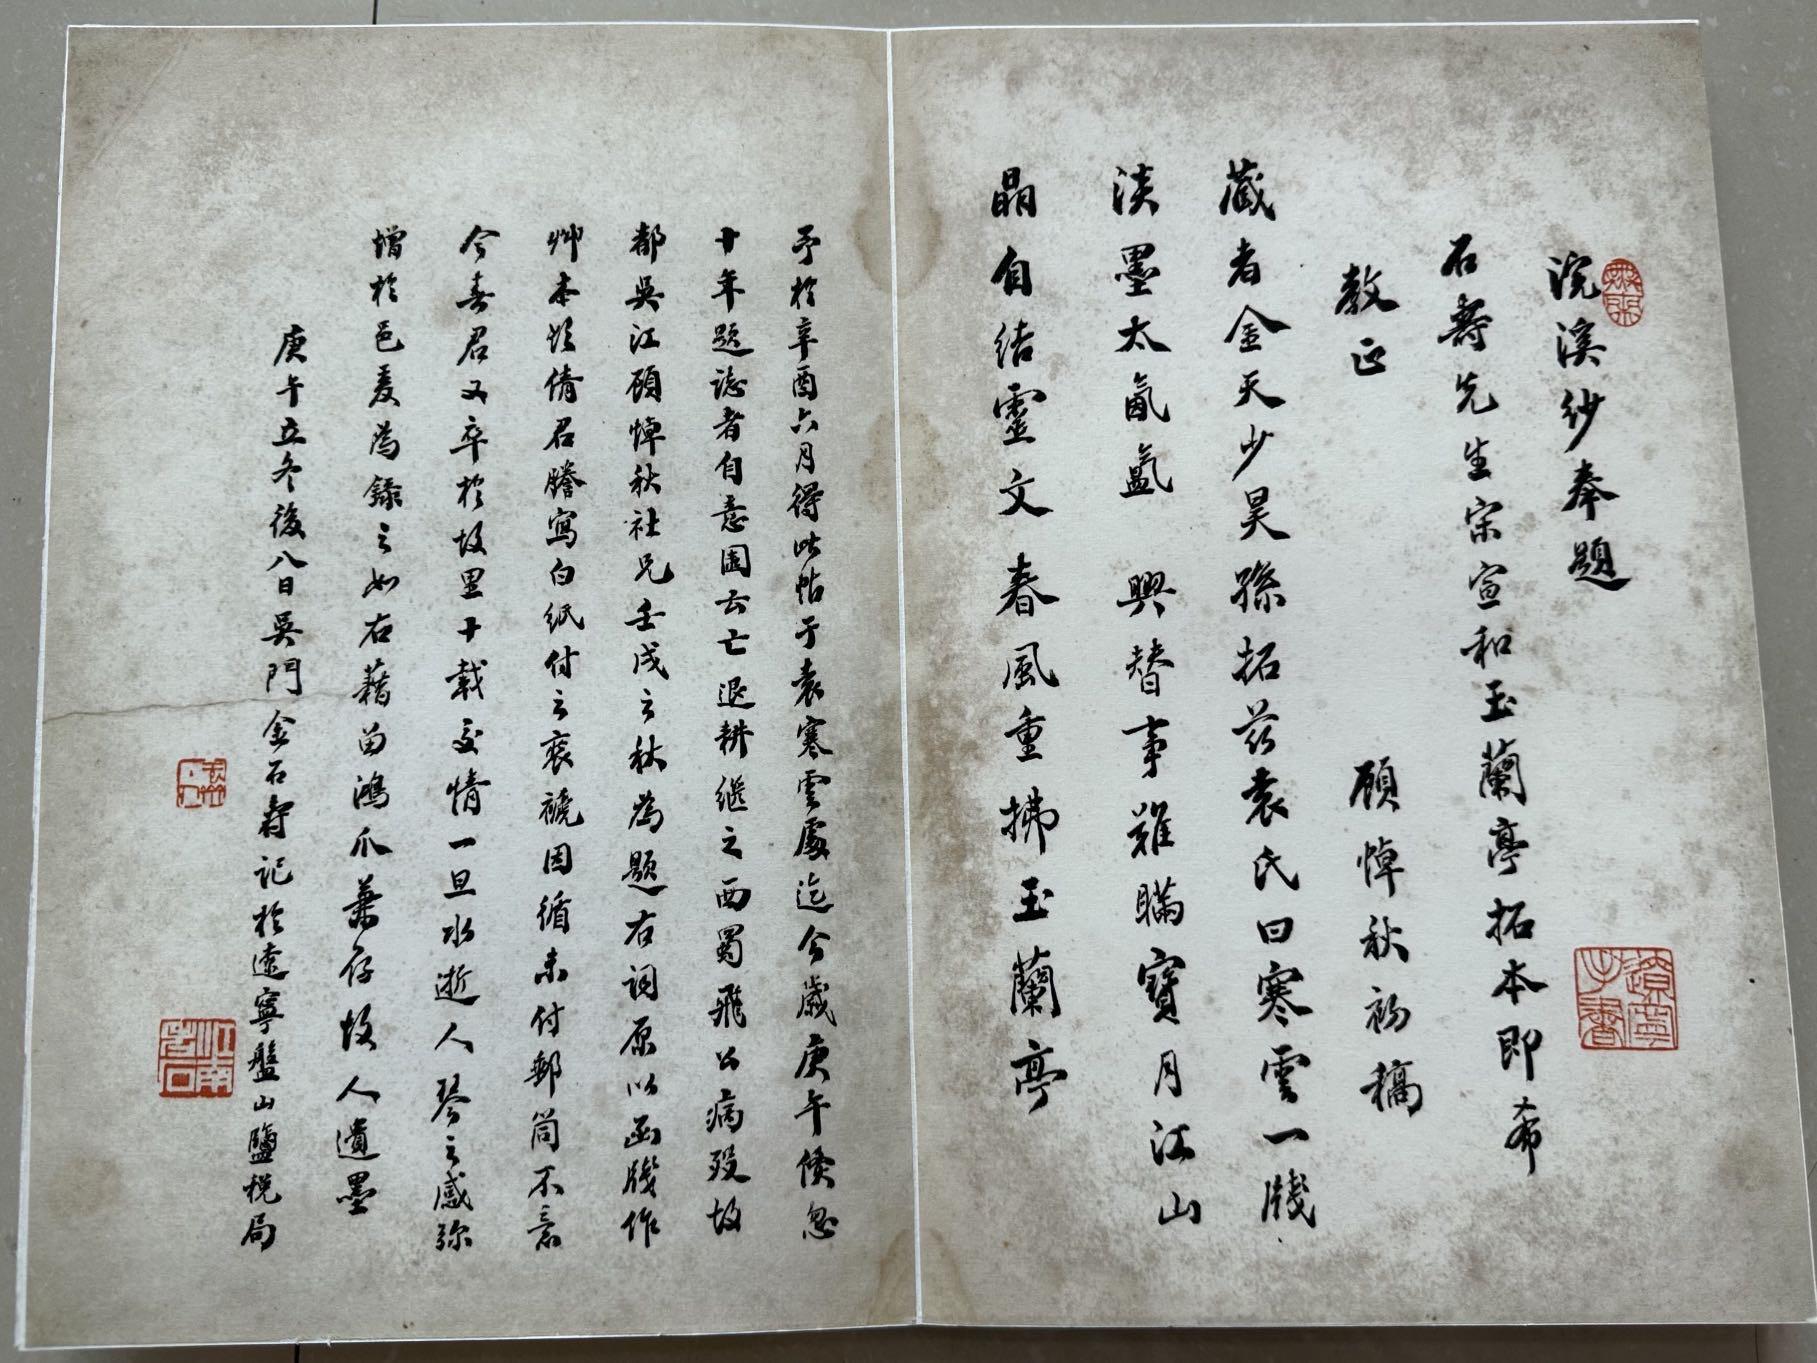 浣溪紗奉題
石壽先生宋宣和玉蘭亭拓本即希
教正
顧悼秋初稿
藏者金天少昊孫拓茲袁氏曰寒雲一牋
淡墨太氤氳 興替事難瞞寶月江山
晶自結靈文春風重拂玉蘭亭
予於辛酉六月得此帖于袁寒雲處迄今歲庚午倏忽
十年題誌者自意園云亡退耕繼之西蜀飛公病歿故
都吳江顧悼秋社兄壬戌之秋為題右詞原以函牋作
艸本欲倩君謄寫白紙付之裝褫因循未付郵筒不意
今春君又卒於故里十載交情一旦水逝人琴之感弥
增於邑爰為錄之如右藉留鴻爪兼存故人遺墨
庚午立冬後八日吳門金石壽記於遼寧盤山鹽稅局
遼寧
手書
江南